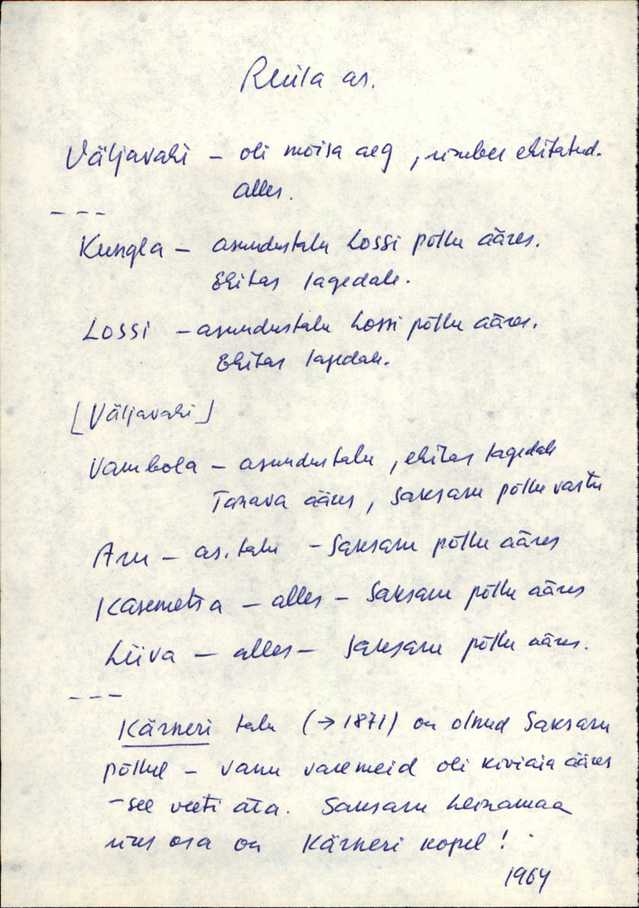 Rehila as.
Väljavahi – oli mõisa aeg, ümber ehitatud.
alles.
---
Kungla – asundustalu Lossi põllu ääres.
Ehitas lagedale.
Lossi – asundustalu Lossi põllu ääres.
Ehitas lagedale.
[Väljavahi]
Vambola – asundustalu, ehitas lagedale
ääres, Saksaru põllu vastu
Aru – as. talu – Saksaru põllu ääres
Kasemetsa – alles – Saksaru põllu ääres
Liiva – alles – Saksaru põllu ääres.
---
Kärneri talu (→ 1871) on olnud Saksaru
põllul – vanu varemeid oli kiviaia ääres
– see veeti ära. Saksaru heinamaa
üks osa on Kärneri kopel!
1964